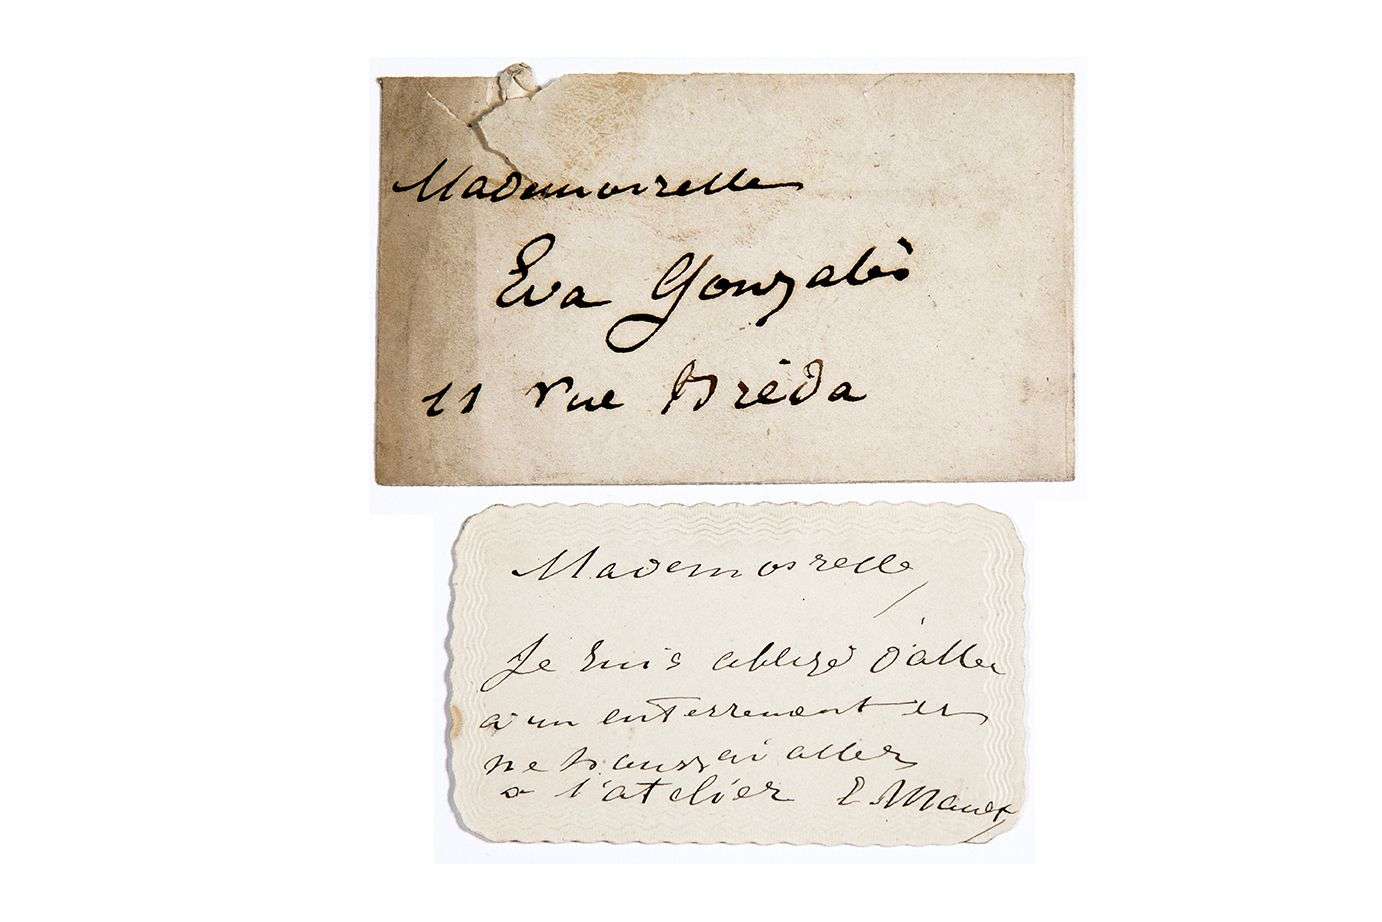 Mademoiselle
Eva Gonzalès
11 rue Bréda
Mademoiselle,
Je suis obligé d'aller
à un enterrement et
ne pourrai aller
à l'atelier E. Manet